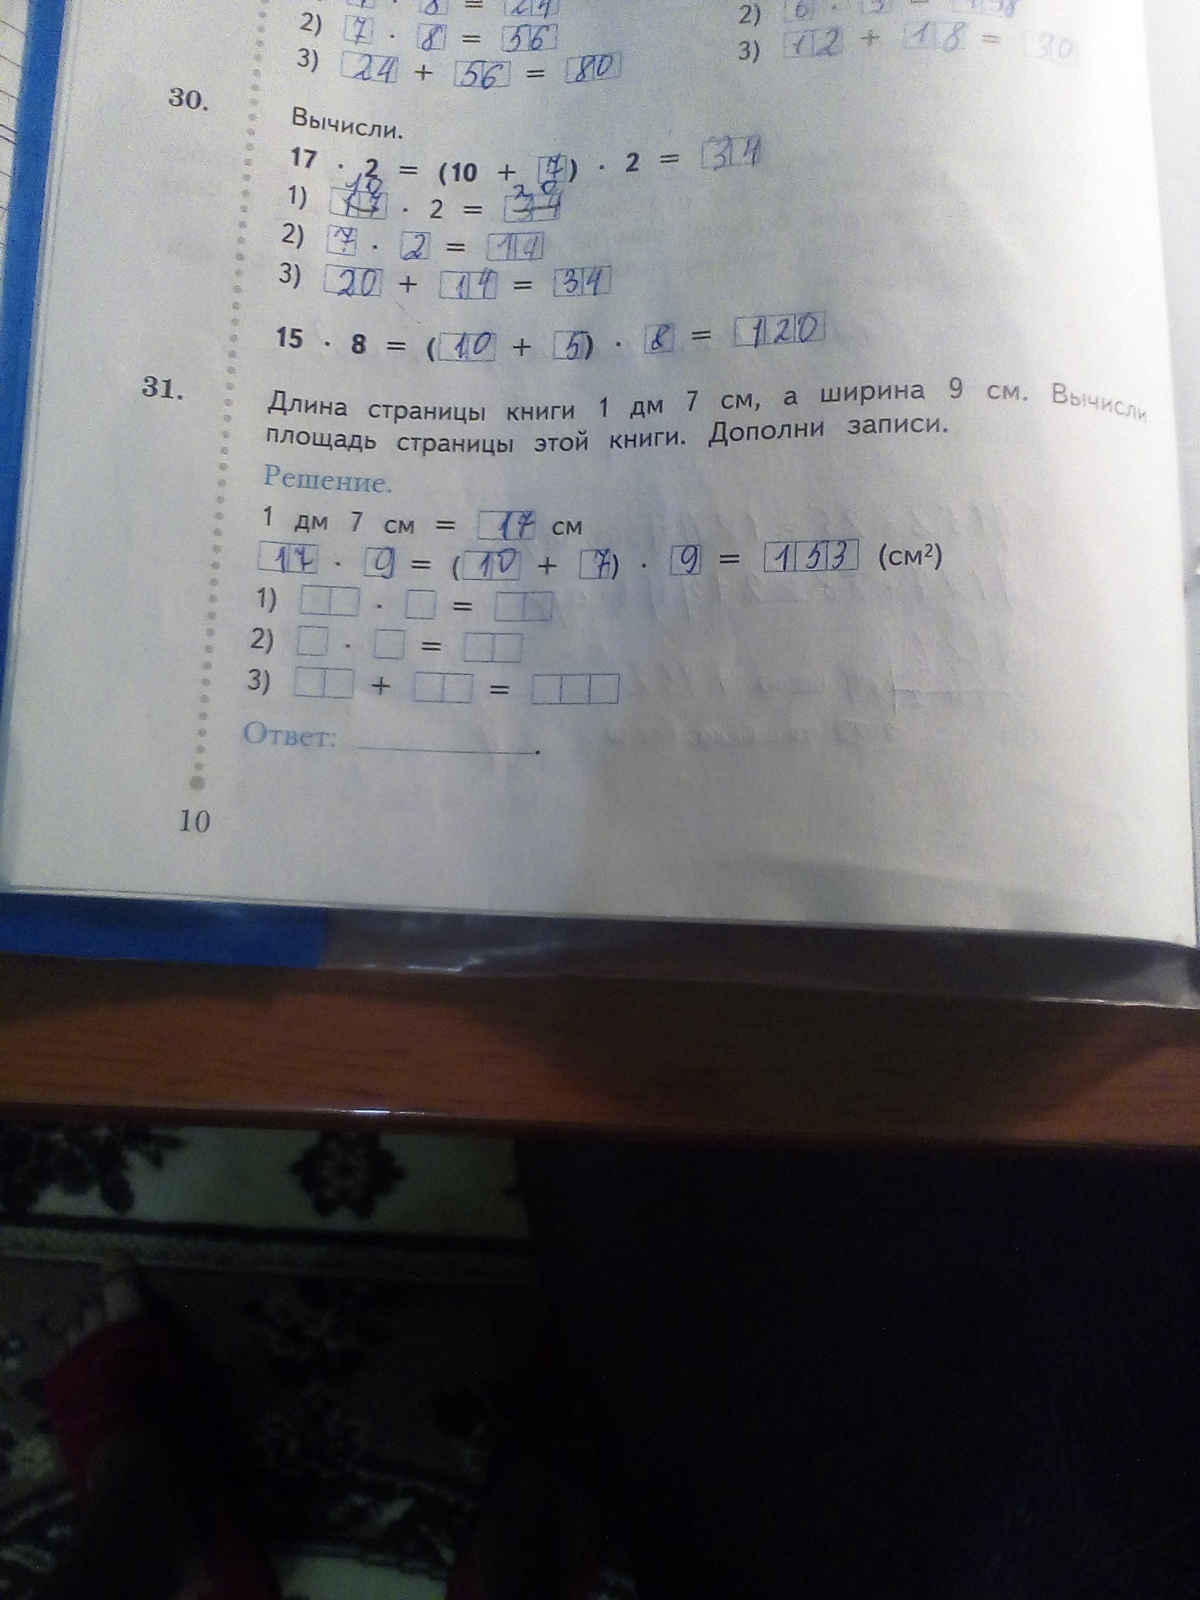 8 = 24
2) 7 · 8 = 56
3) 24 + 56 = 80
2) 6 · 3 =
3) 12 + 18 = 30
30.
Вычисли.
17 · 2 = (10 + 7) · 2 = 34
10 20
1) 17 · 2 = 34
2) 7 · 2 = 14
3) 20 + 14 = 34
15 · 8 = (10 + 5) · 8 = 120
31.
Длина страницы книги 1 дм 7 см, а ширина 9 см. Вычисли
площадь страницы этой книги. Дополни записи.
Решение.
1 дм 7 см = 17 см
17 · 9 = (10 + 7) · 9 = 153 (см²)
1) · =
2) · =
3) + =
Ответ: .
10